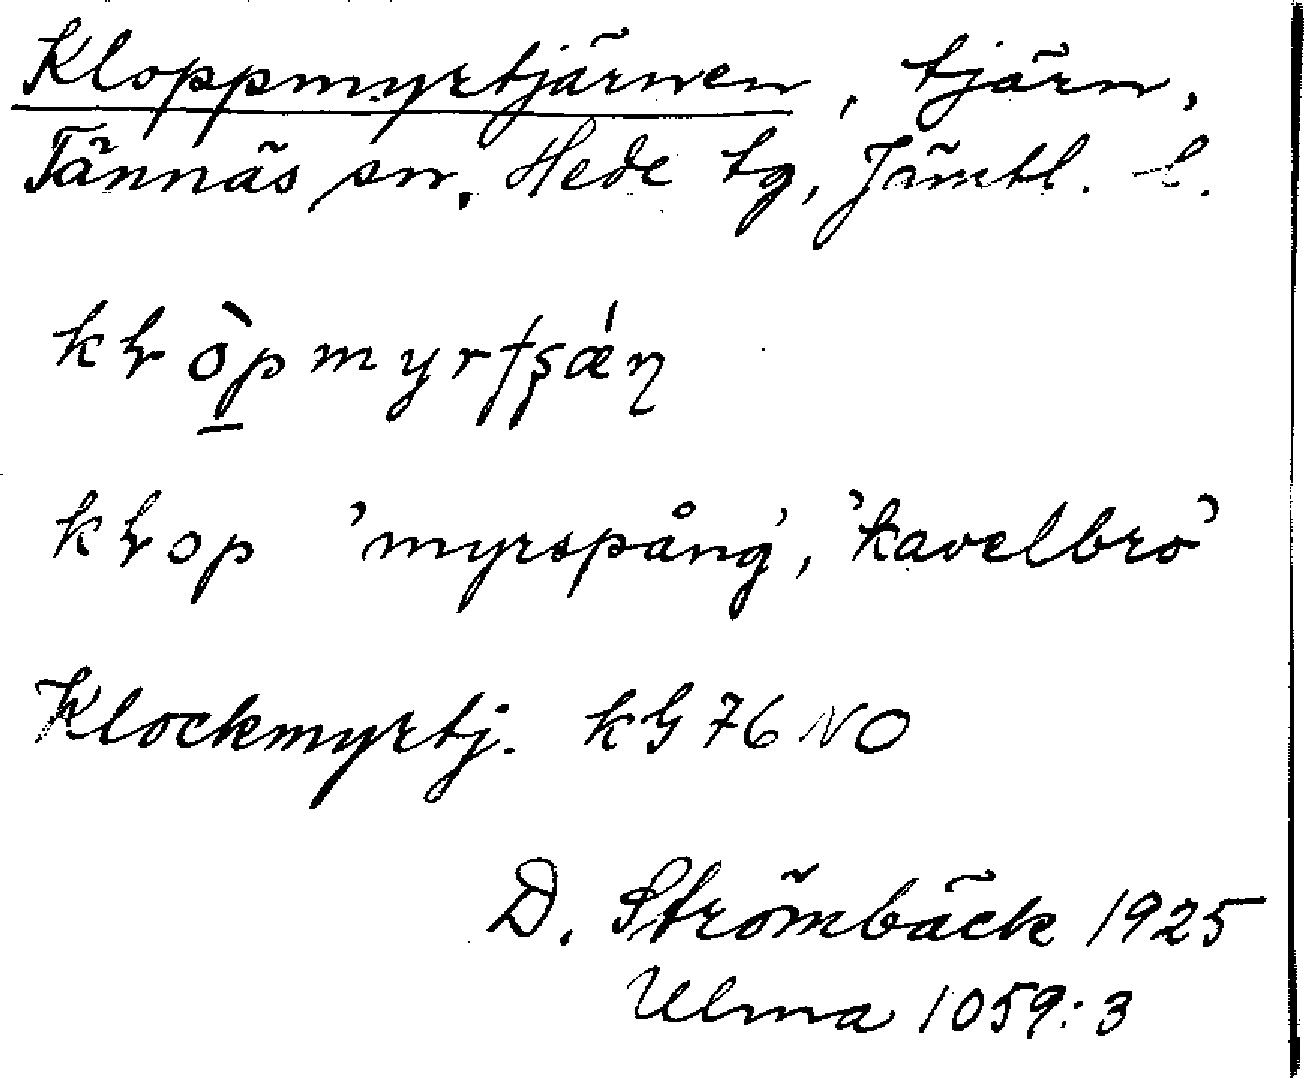 Kloppmyrtjärnen, tjärn,
Tännäs sn, Hede tg, Jämtl. l.
kɫop 'myrspång', 'kavelbro'
Klockmyrtj. kG 76 NO
D. Strömbäck 1925
Ulma 1059:3